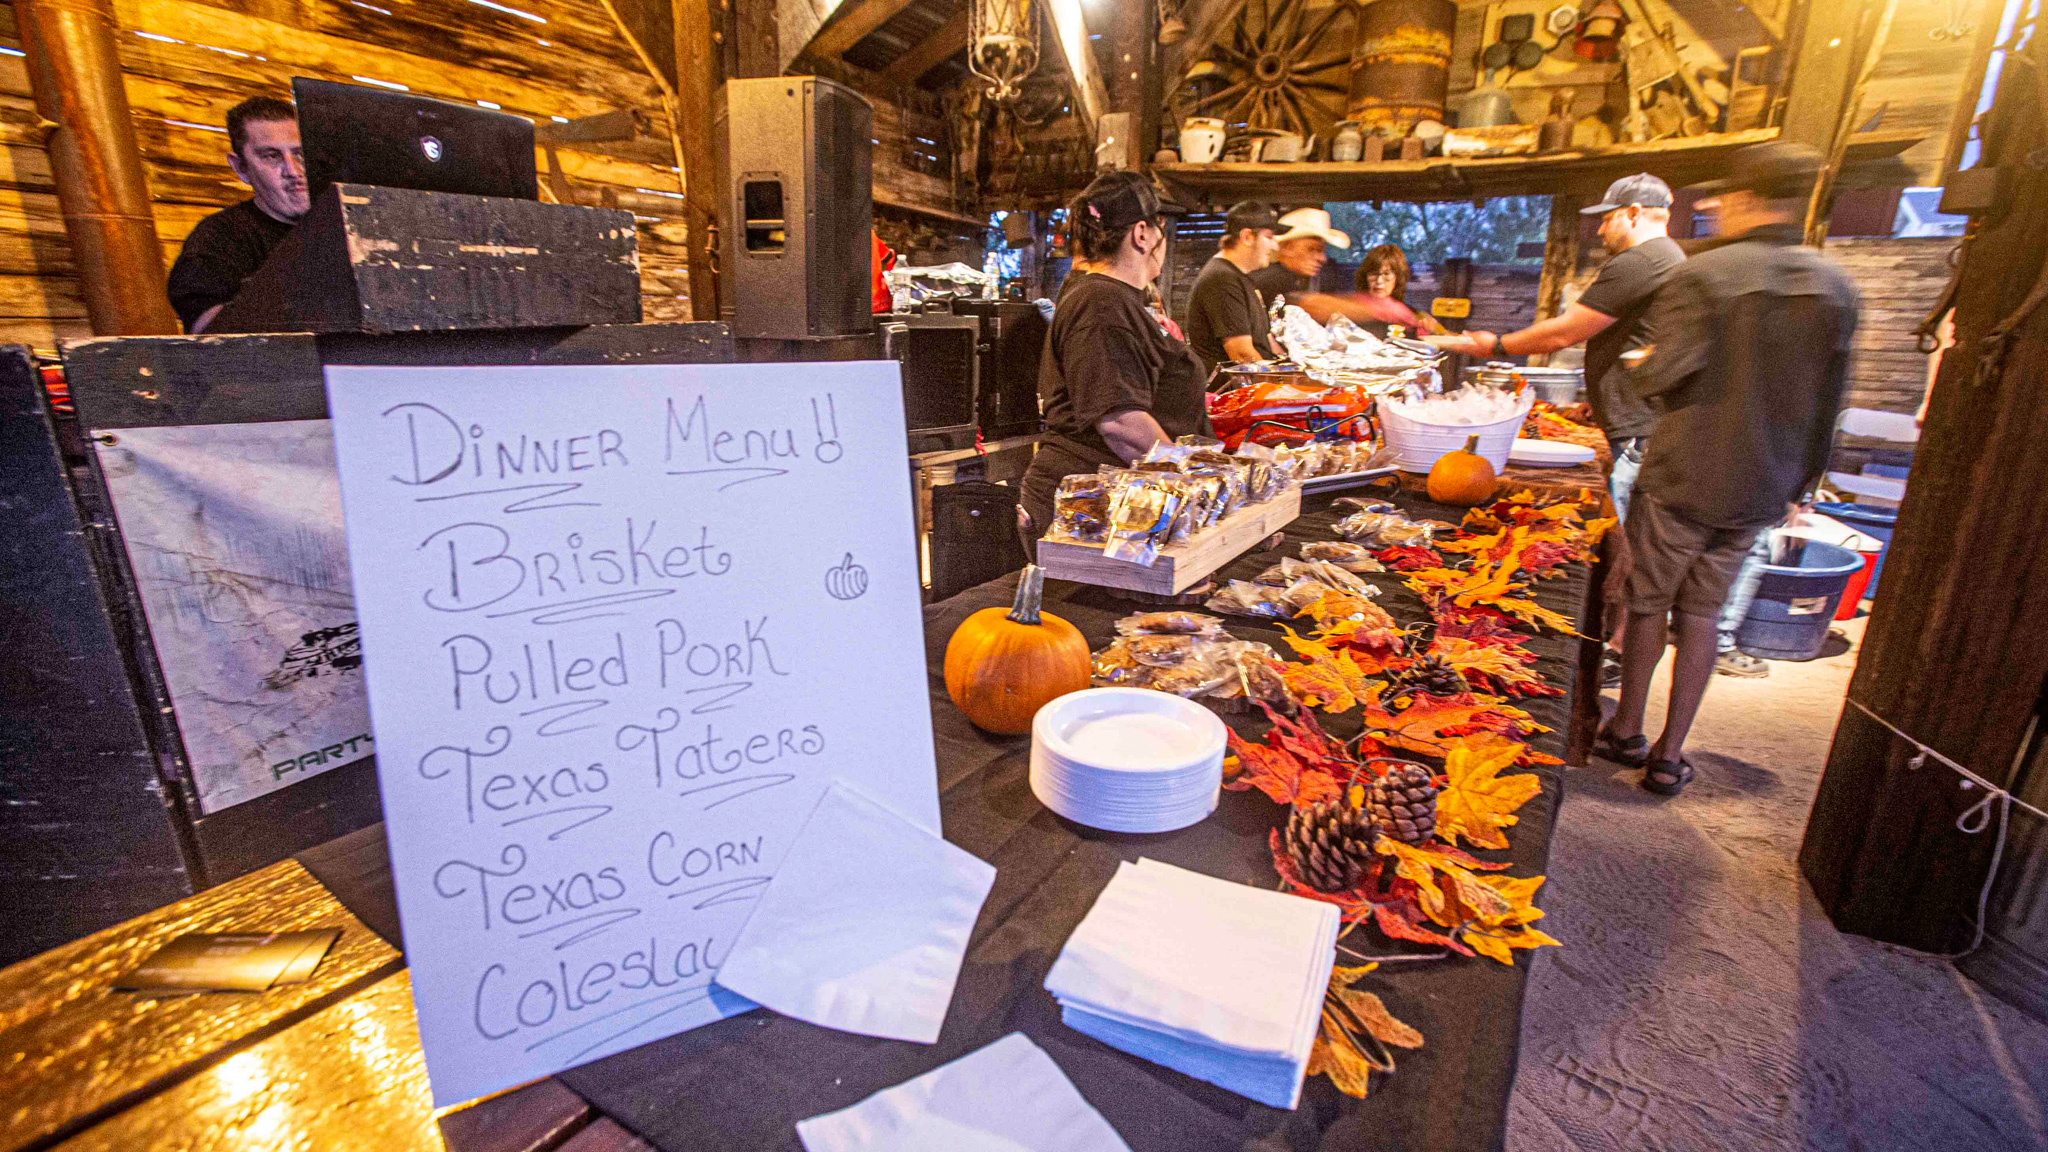 Dinner Menu!!
Brisket
Pulled Pork
Texas Taters
Texas Corn
Coleslaw
PARTY